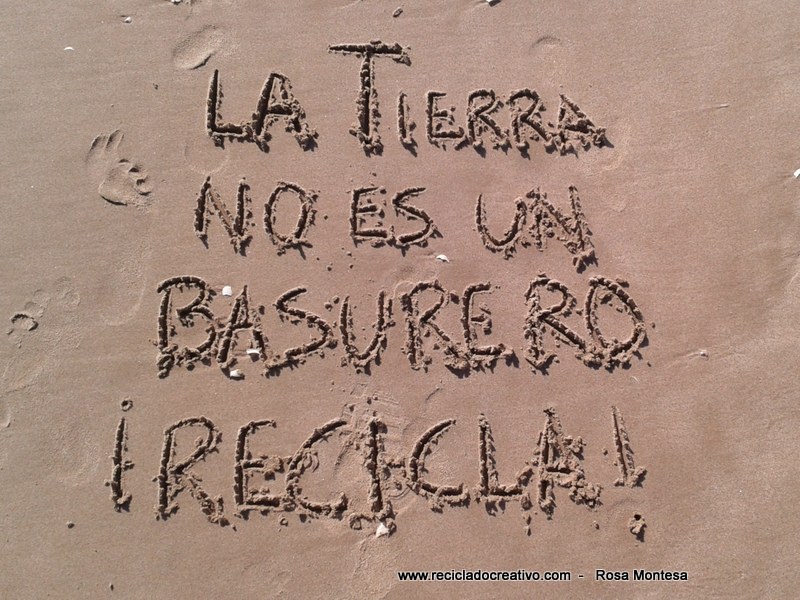 LA TIERRA
NO ES UN
BASURERO
¡RECICLA!
www.recicladocreativo.com - Rosa Montesa